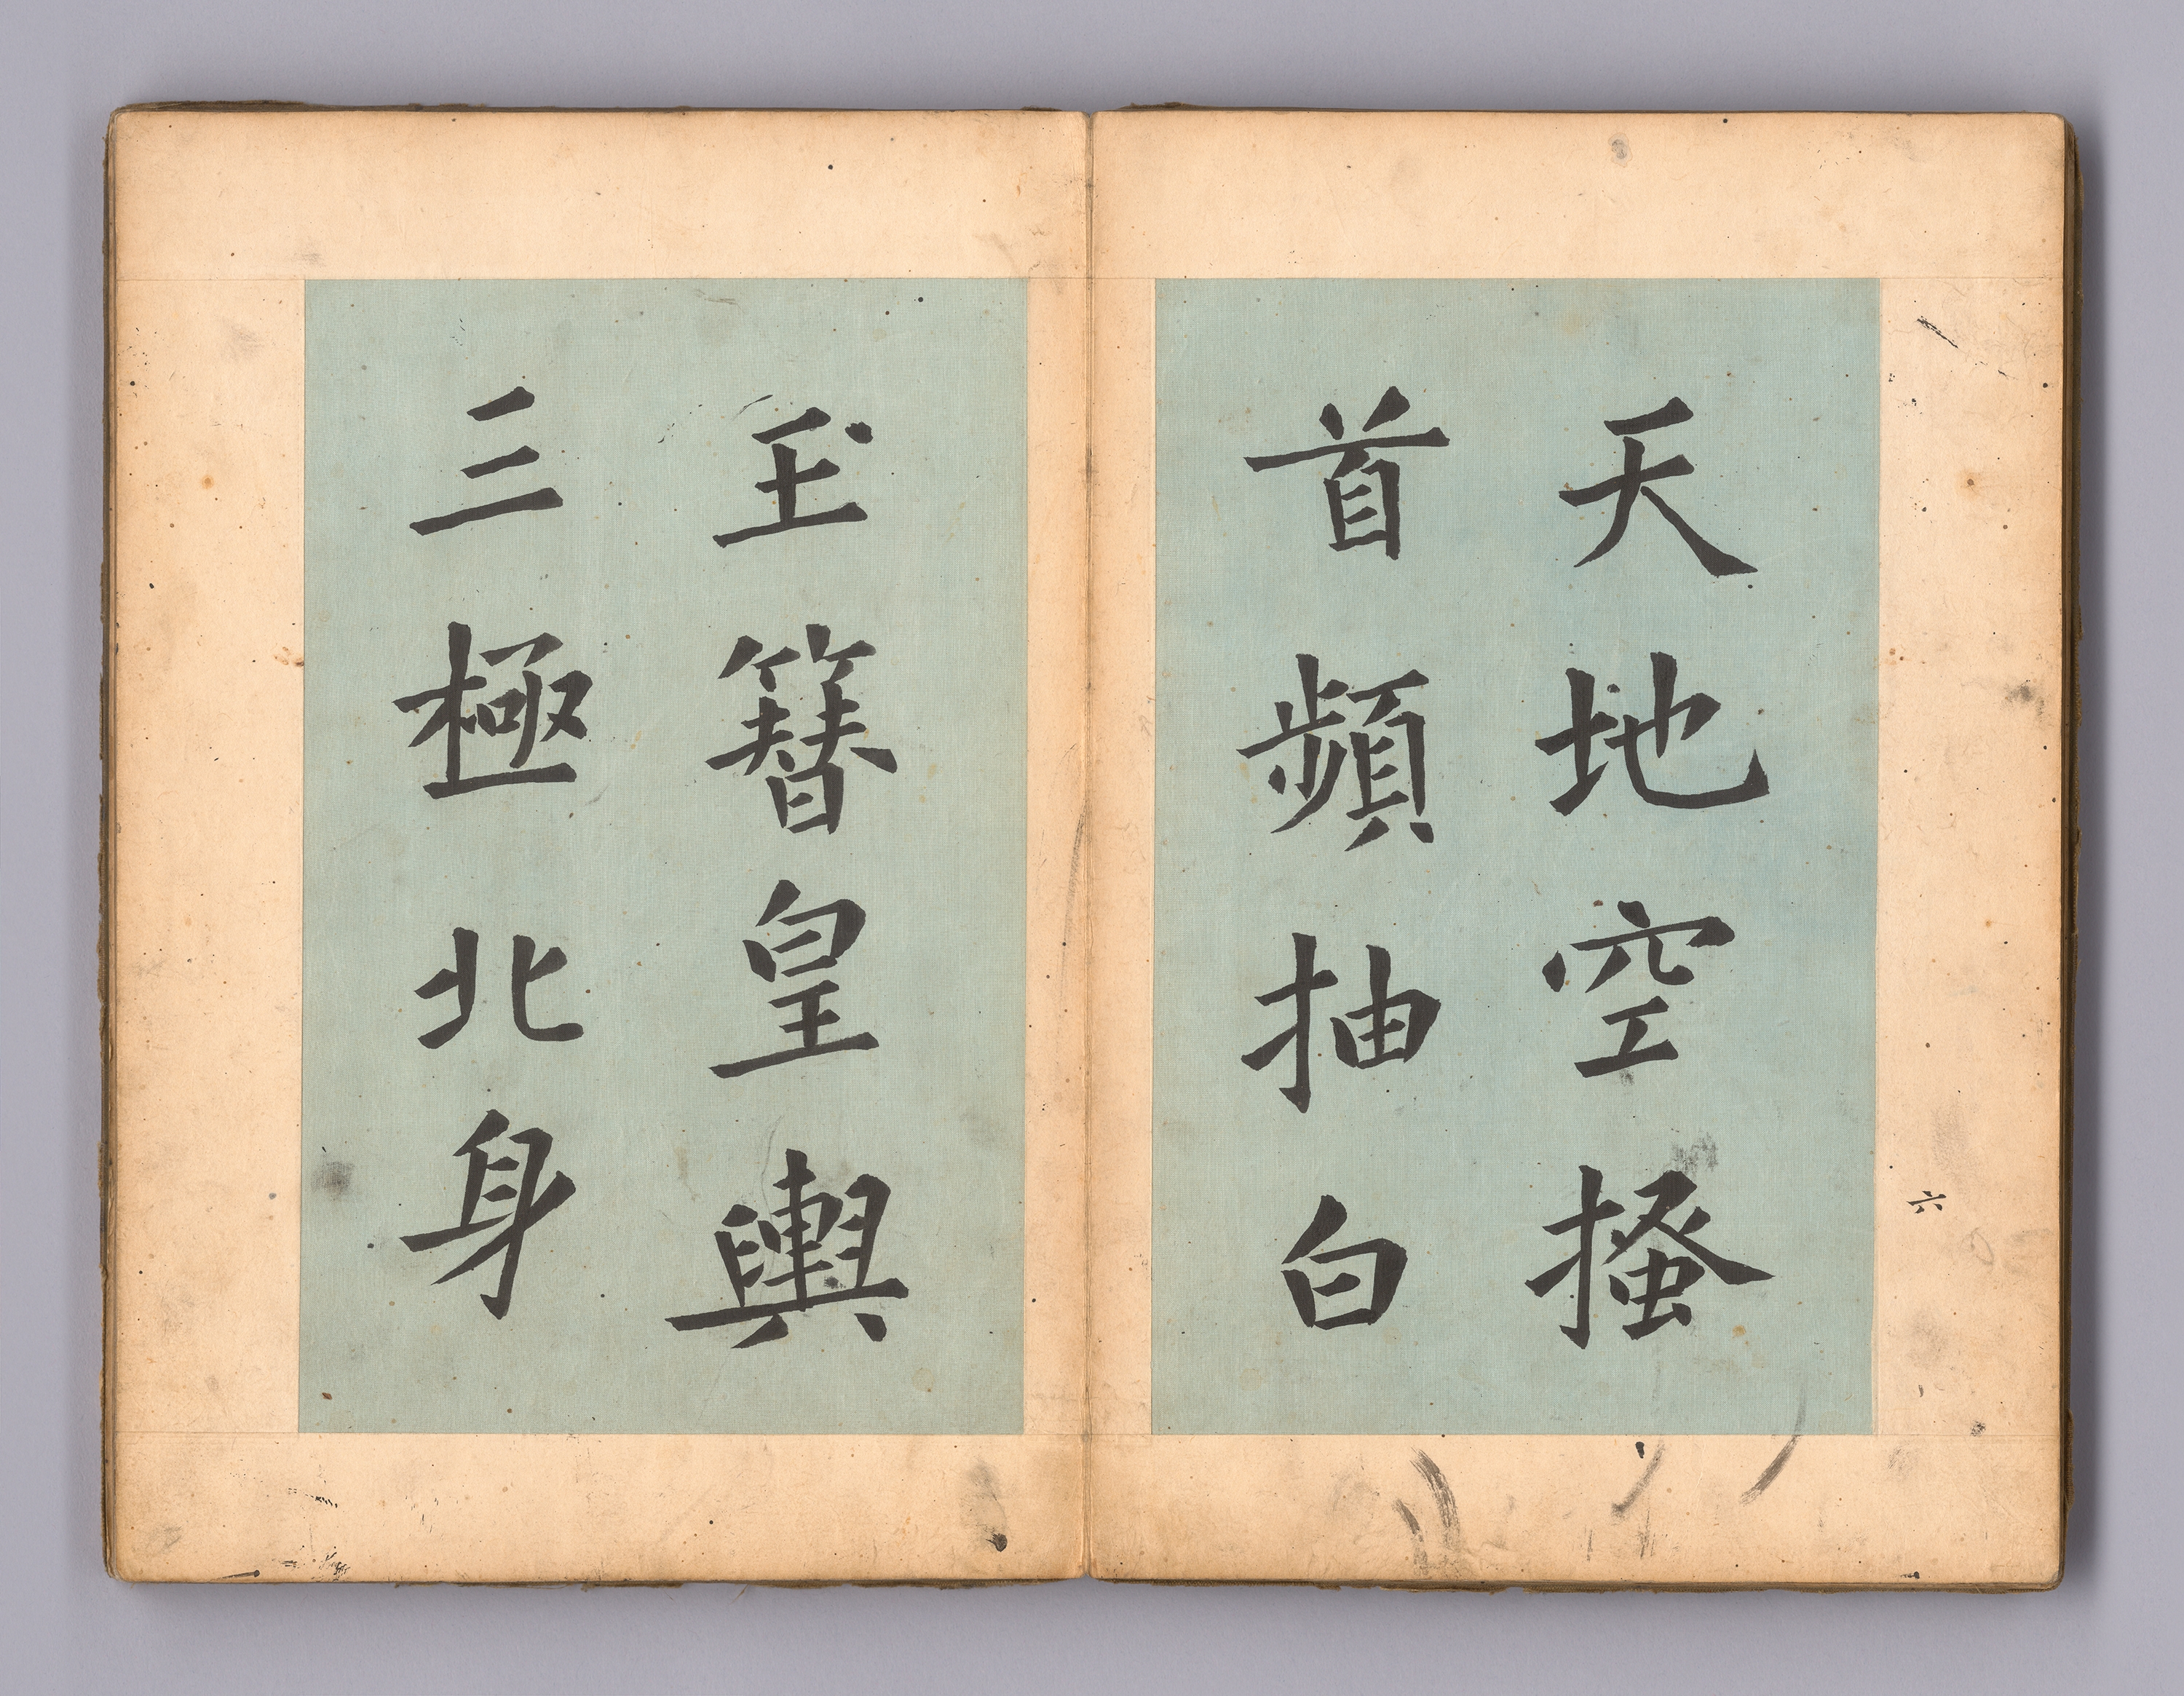 六
天地空搔
首頻抽白
玉簪皇輿
三極北身